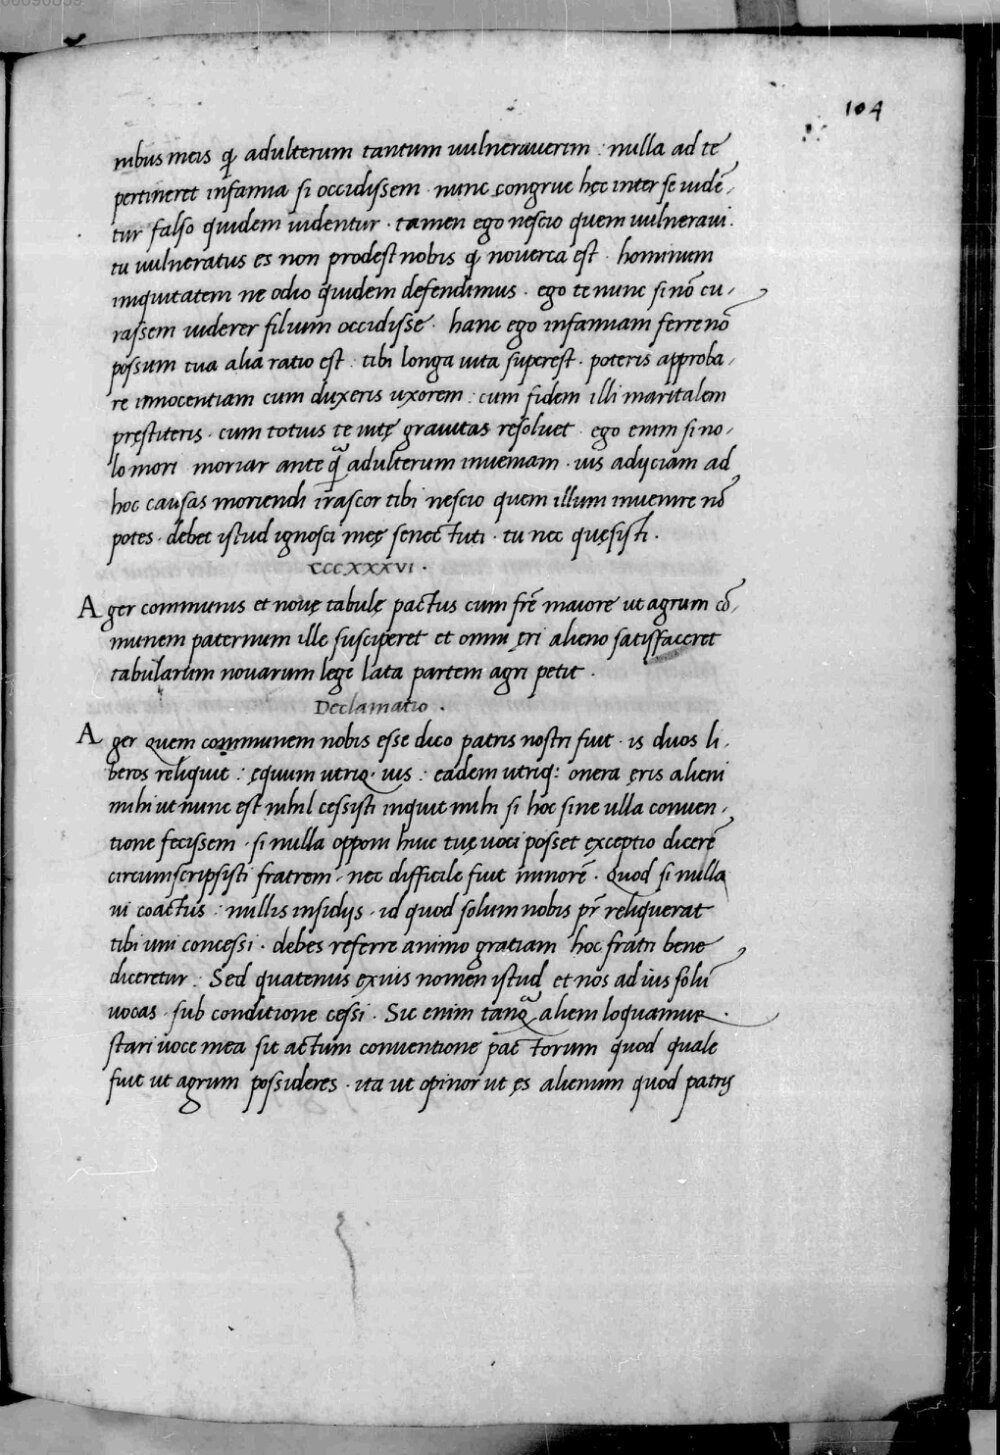 00090099
104
nibus meis q̃ adulterum tantum uulnerauerim : nulla ad te
pertineret infamia si occidissem · nunc congrue hęc inter se uidẽ-
tur falso quidem uidentur · tamen ego nescio quem uulneraui ·
tu uulneratus es non prodest nobis q̃ nouerca est · hominum
iniquitatem ne odio quidem defendimus · ego te nunc si nõ cu-
rassem uiderer filium occidisse · hanc ego infamiam ferre nõ
possum tua alia ratio est : tibi longa uita superest · poteris approba-
re innocentiam cum duxeris uxorem : cum fidem illi maritalem
pręstiteris · cum totius te uitę grauitas resoluet · ego enim si no-
lo mori moriar ante q̃ adulterum inueniam · uis adijciam ad
hoc causas moriendi irascor tibi nescio quem illum inuenire nõ
potes · debet istud ignosci meę senectuti · tu nec quęsisti ·
CCCXXXVI ·
Ager communis et nouę tabulę pactus cum frẽ maiore ut agrum cõ-
munem paternum ille susciperet et omni ęri alieno satisfaceret
tabularum nouarum lege lata partem agri petit ·
Declamatio ·
Ager quem communem nobis esse dico patris nostri fuit · is duos li-
beros reliquit : ęquum utriq · ius : eadem utriq : onera ęris alieni
mihi ut nunc est nihil cessisti inquit mihi si hoc sine ulla conuen-
tione fecissem · si nulla opponi huic tuę uoci posset exceptio dicerẽ
circumscripsisti fratrem · nec difficile fuit minorẽ · Quod si nulla
ui coactus : nullis insidijs · id quod solum nobis pr̃ reliquerat
tibi uni concessi · debes referre animo gratiam hoc fratri bene
diceretur : Sed quatenus exuis nomen istud et nos ad ius solũ
uocas · sub conditione cessi · Sic enim tanq̃ alieni loquamur ·
stari uoce mea sit actum conuentione pactorum quod quale
fuit ut agrum possideres · ita ut opinor ut ęs alienum quod patris